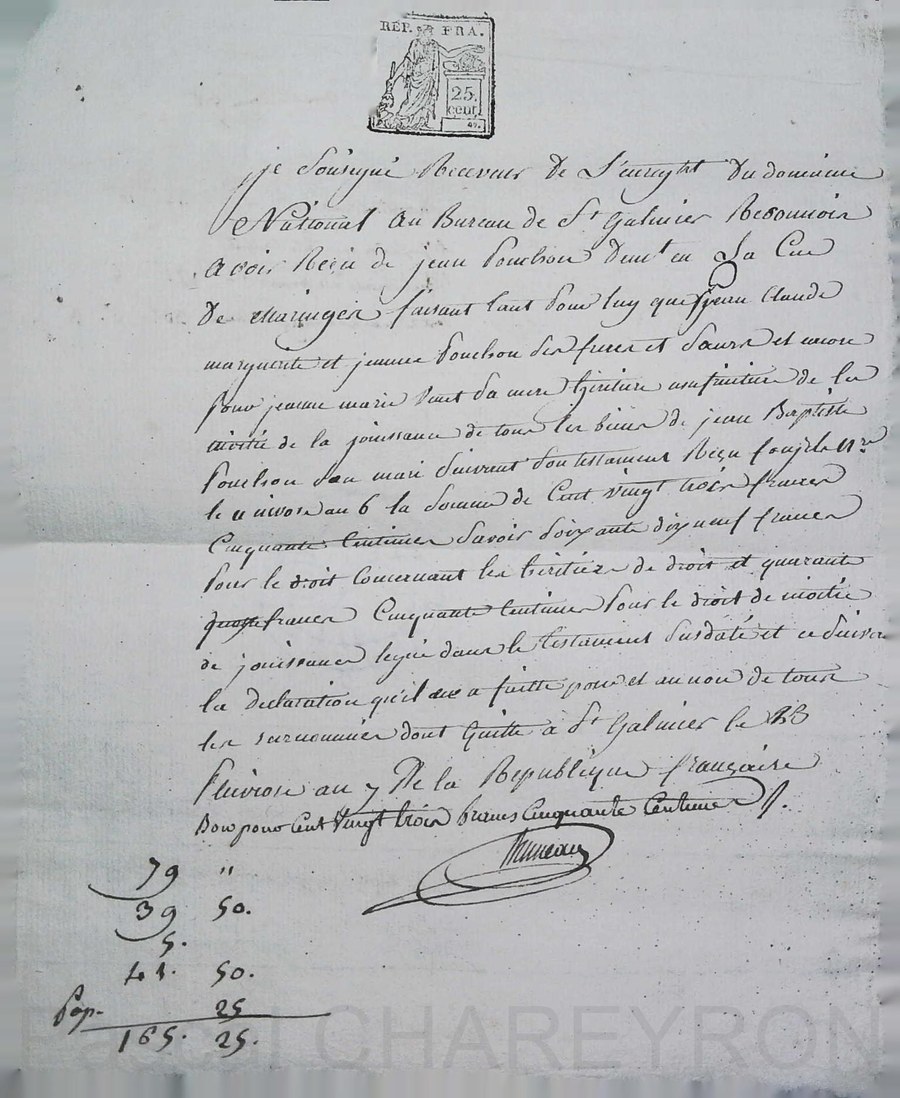 REP. FRA.
25.
cent.
je Sousigné Receveur de L'enregt du domaine
National au Bureau de St Galmier Reconnoir
avoir Reçu de jean Ponchon demt en La Cue
De Maringes faisant tant pour luy que jean Claude
marguerite et jeanne Ponchon ses freres et Sœurs et encore
pour jeanne marie sa mere heritiere usufruitiere de la
moitié de la jouissance de tous les biens de jean Baptiste
Ponchon son mari Suivant son testament Reçu
le 11 nivose an 6 la Somme de Cent vingt trois francs
Cinquante Centimes Savoir Soixante dix neuf francs
Pour le droit Concernant les heritiers de droit et quarante
francs Cinquante Centimes Pour le droit de moitié
de jouissance legué dans le testament Susdaté et ce Suivant
la declaration qu'il en a faitte pour et au nom de tous
les surnommés dont Quitte à St Galmier le 23
Pluviose an 7 De la Republique française
Bon pour Cent Vingt trois francs Cinquante Centimes
79 "
39 50.
5.
41. 50.
Pap. 25
165. 25.
Pascal CHAREYRON